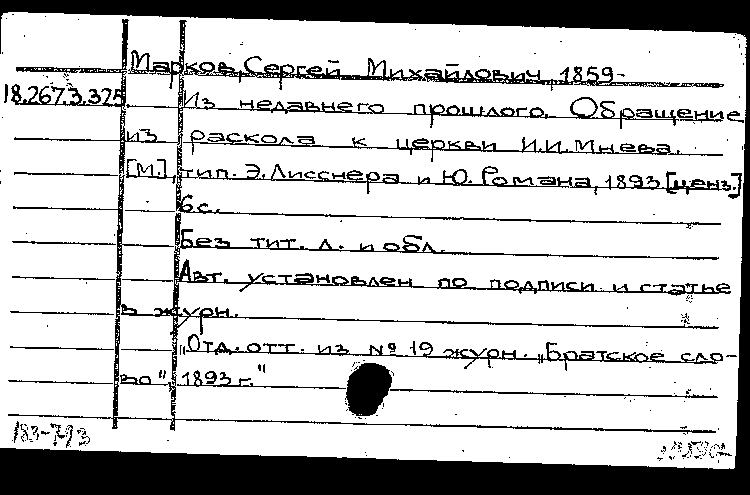 Марков, Сергей Михайлович, 1859-
18.267.3.325. Из недавнего прошлого. Обращение
из раскола к церкви И.И.Мнева.
[М.], тип. Э.Лисснера и Ю.Романа, 1893 [ценз.]
6 с.
Без тит. л. и обл.
Авт. установлен по подписи и статье
в журн.
„Отд. отт. из № 19 журн. „Братское сло-
во", 1893 г."
183-793